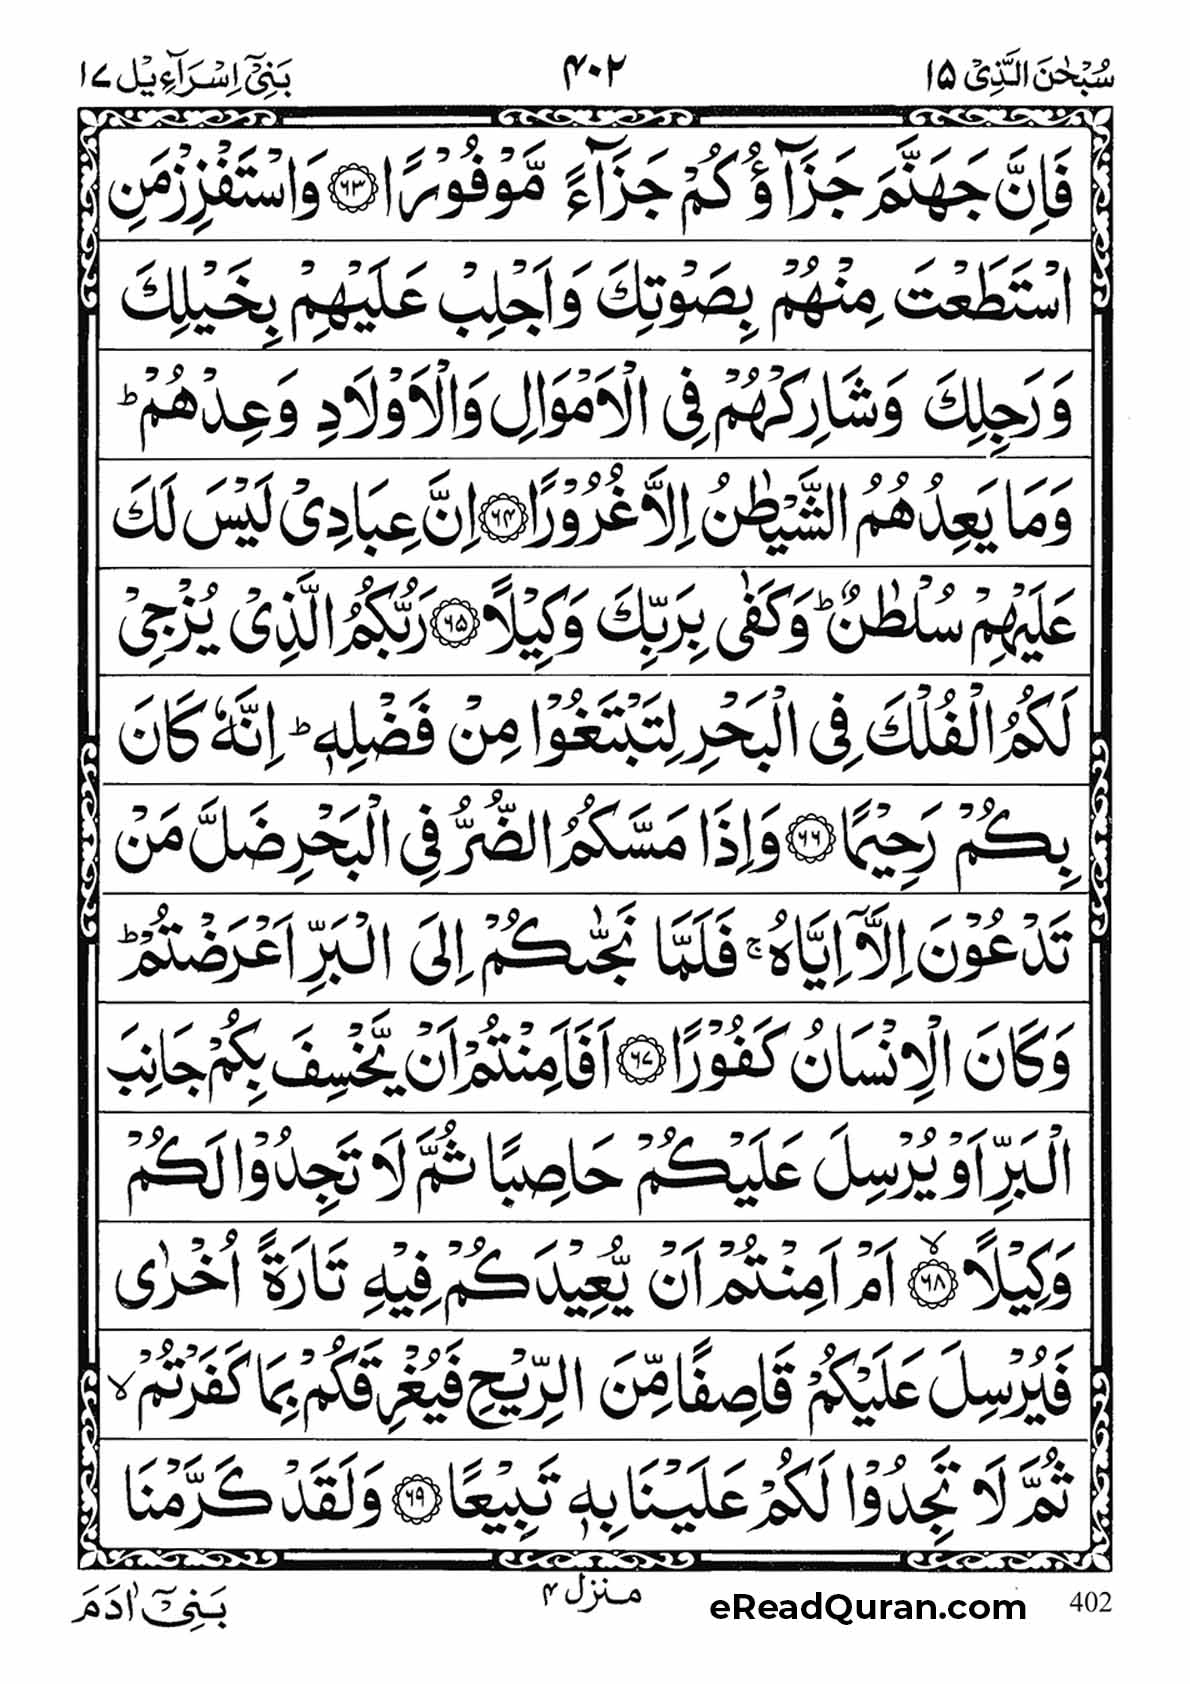 سُبْحٰنَ الَّذِیْۤ ۱۵
۴۰۲
بَنِیْۤ اِسْرَآءِیْل ۱۷
فَاِنَّ جَهَنَّمَ جَزَآؤُكُمْ جَزَآءً مَّوْفُوْرًا ﴿۶۳﴾ وَاسْتَفْزِزْ مَنِ
اسْتَطَعْتَ مِنْهُمْ بِصَوْتِكَ وَاَجْلِبْ عَلَیْهِمْ بِخَیْلِكَ
وَرَجِلِكَ وَشَارِكْهُمْ فِی الْاَمْوَالِ وَالْاَوْلَادِ وَعِدْهُمْ ؕ
وَمَا یَعِدُهُمُ الشَّیْطٰنُ اِلَّا غُرُوْرًا ﴿۶۴﴾ اِنَّ عِبَادِیْ لَیْسَ لَكَ
عَلَیْهِمْ سُلْطٰنٌ ؕ وَكَفٰی بِرَبِّكَ وَكِیْلًا ﴿۶۵﴾ رَبُّكُمُ الَّذِیْ یُزْجِیْ
لَكُمُ الْفُلْكَ فِی الْبَحْرِ لِتَبْتَغُوْا مِنْ فَضْلِهٖ ؕ اِنَّهٗ كَانَ
بِكُمْ رَحِیْمًا ﴿۶۶﴾ وَاِذَا مَسَّكُمُ الضُّرُّ فِی الْبَحْرِ ضَلَّ مَنْ
تَدْعُوْنَ اِلَّاۤ اِیَّاهُ ۚ فَلَمَّا نَجّٰىكُمْ اِلَی الْبَرِّ اَعْرَضْتُمْ ؕ
وَكَانَ الْاِنْسَانُ كَفُوْرًا ﴿۶۷﴾ اَفَاَمِنْتُمْ اَنْ یَّخْسِفَ بِكُمْ جَانِبَ
الْبَرِّ اَوْ یُرْسِلَ عَلَیْكُمْ حَاصِبًا ثُمَّ لَا تَجِدُوْا لَكُمْ
وَكِیْلًا ﴿۶۸﴾ۙ اَمْ اَمِنْتُمْ اَنْ یُّعِیْدَكُمْ فِیْهِ تَارَةً اُخْرٰی
فَیُرْسِلَ عَلَیْكُمْ قَاصِفًا مِّنَ الرِّیْحِ فَیُغْرِقَكُمْ بِمَا كَفَرْتُمْ ۙ
ثُمَّ لَا تَجِدُوْا لَكُمْ عَلَیْنَا بِهٖ تَبِیْعًا ﴿۶۹﴾ وَلَقَدْ كَرَّمْنَا
بَنِیْۤ اٰدَمَ
منزل ۴
eReadQuran.com
402